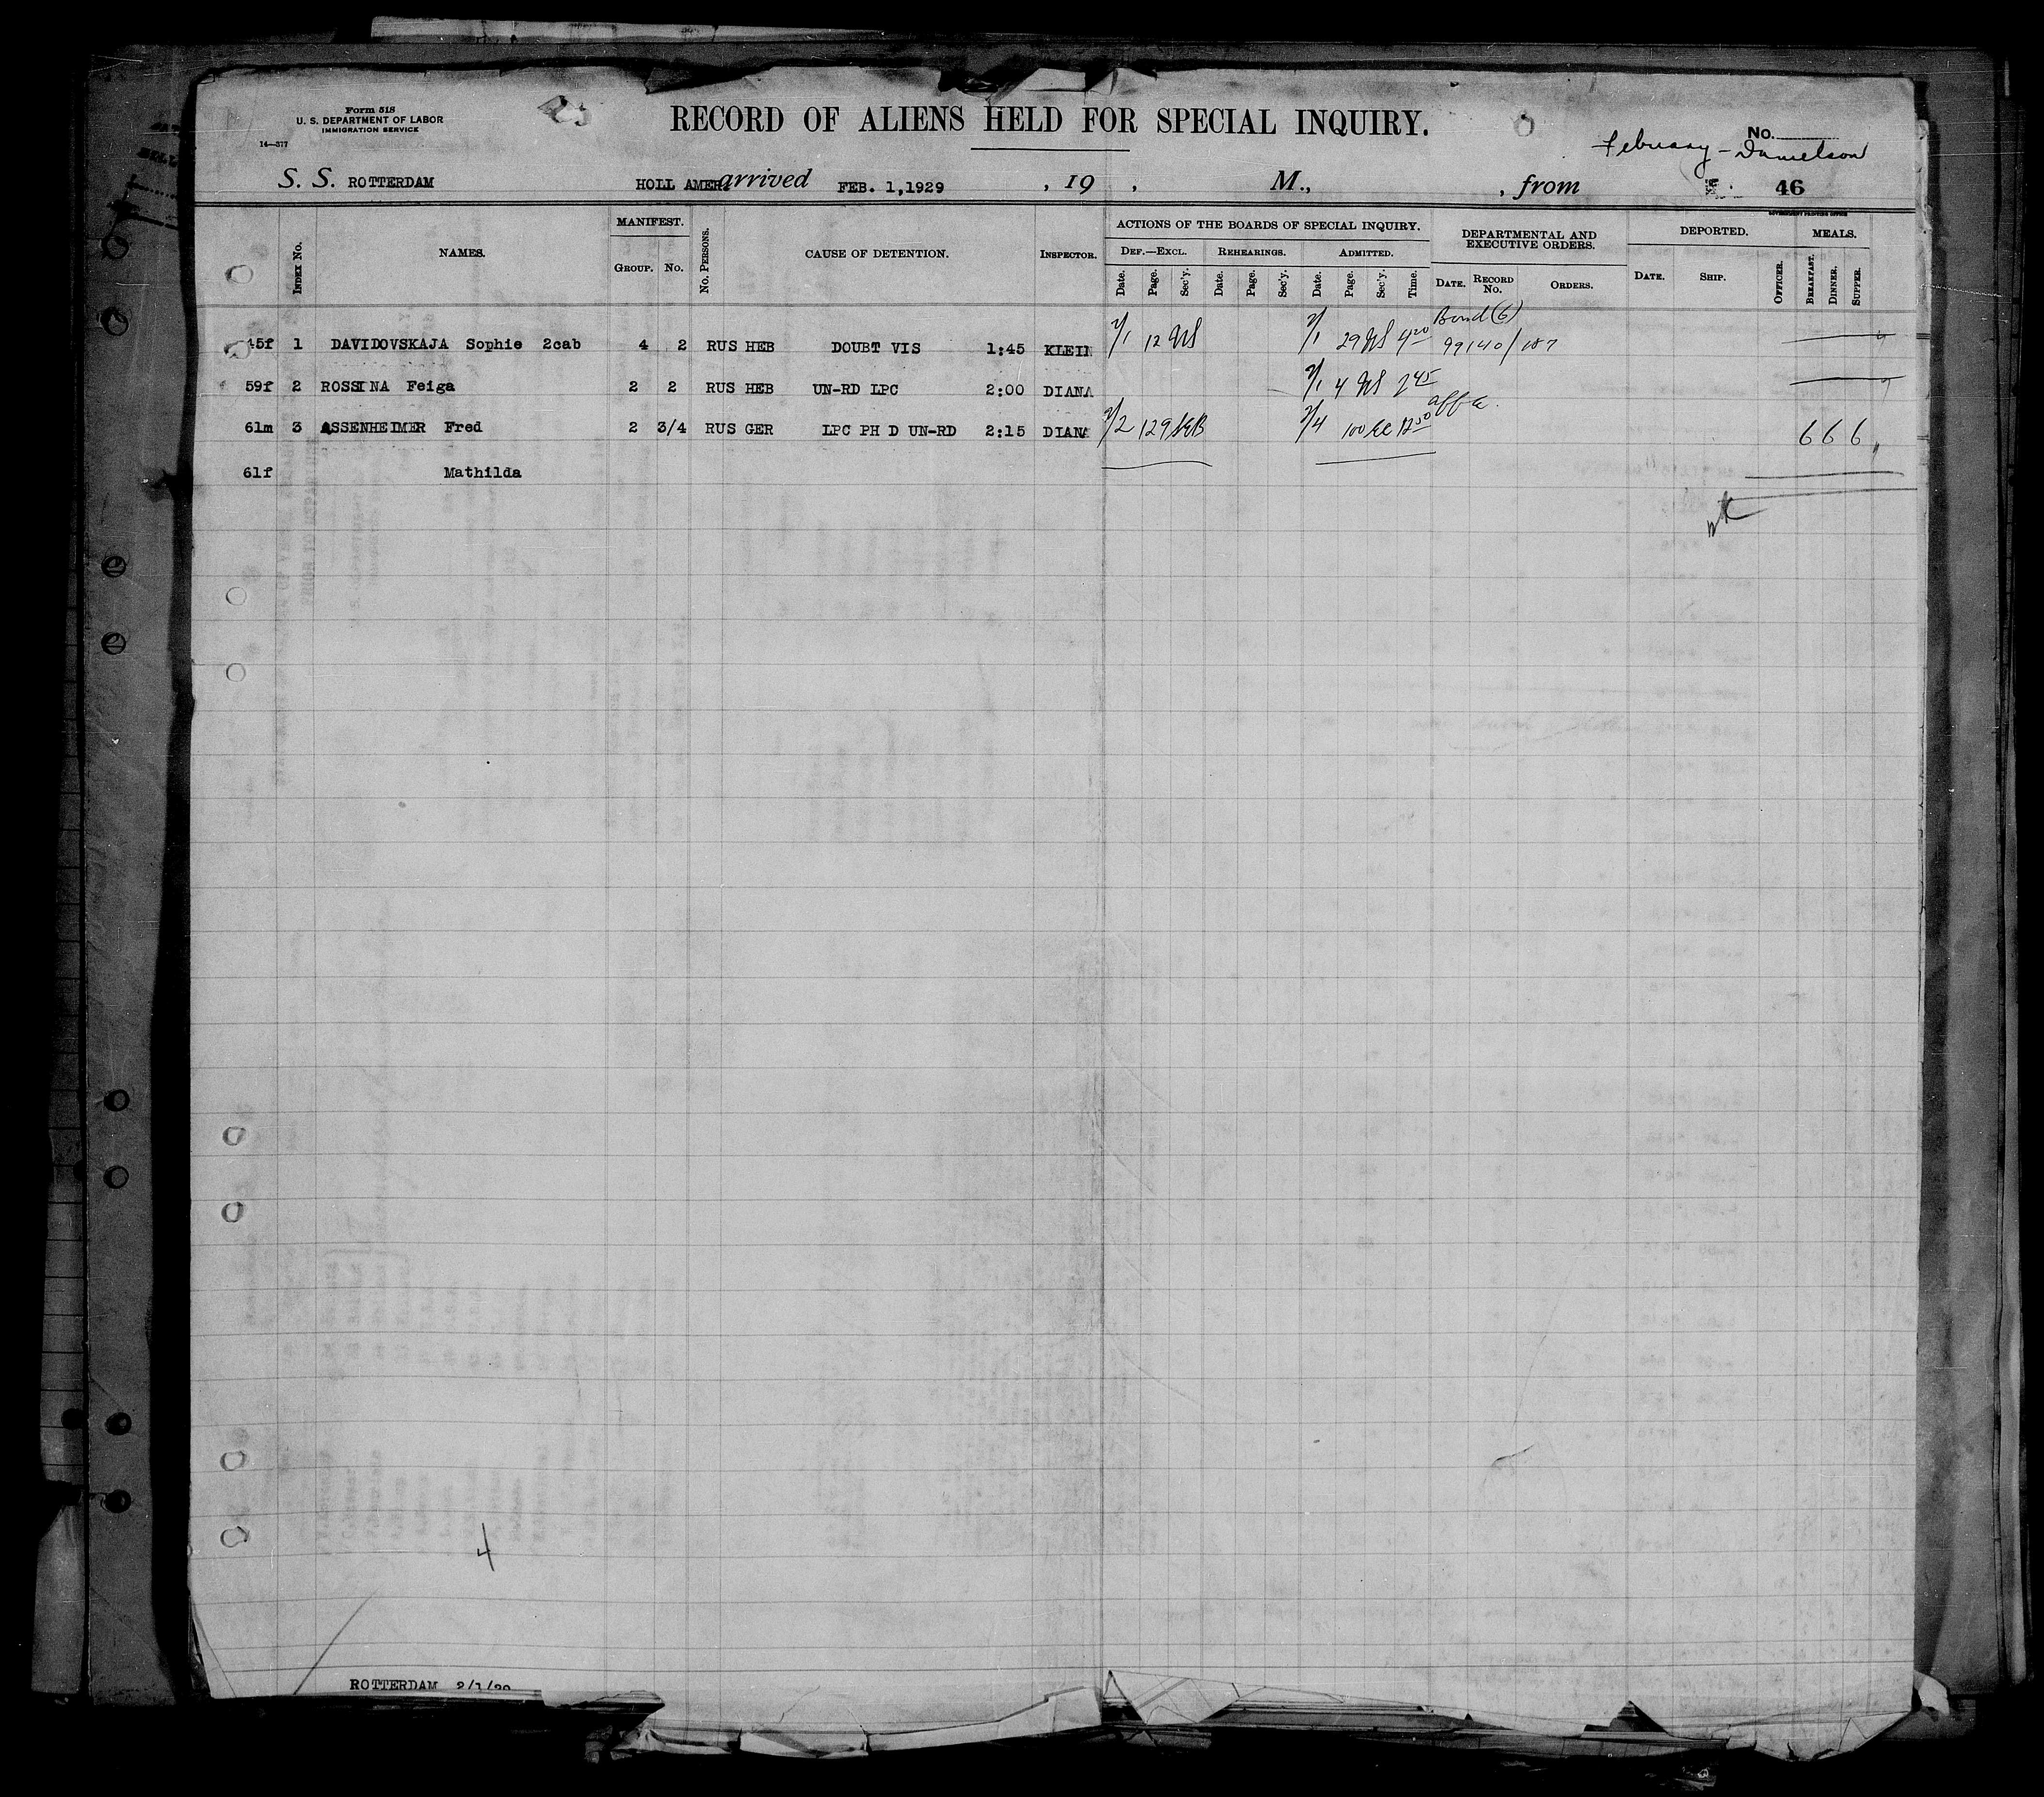 Form 518
U. S. DEPARTMENT OF LABOR
IMMIGRATION SERVICE
14—377
RECORD OF ALIENS HELD FOR SPECIAL INQUIRY.
No.
February - Danielson
S. S. ROTTERDAM HOLL AMER. arrived FEB. 1,1929 , 19 , M., , from 46
GOVERNMENT PRINTING OFFICE
INDEX No. NAMES. MANIFEST. GROUP. No. No. PERSONS. CAUSE OF DETENTION. INSPECTOR. ACTIONS OF THE BOARDS OF SPECIAL INQUIRY. DEPARTMENTAL AND EXECUTIVE ORDERS. DEPORTED. MEALS.
DEF.—EXCL. REHEARINGS. ADMITTED.
Date. Page. Sec'y. Date. Page. Sec'y. Date. Page. Sec'y. Time. DATE. RECORD No. ORDERS. DATE. SHIP. OFFICER. BREAKFAST. DINNER. SUPPER.
45f 1 DAVIDOVSKAJA Sophie 2cab 4 2 RUS HEB DOUBT VIS 1:45 KLEIN 2/1 12 2/1 29 4 20 Bond (6) 99140/187
59f 2 ROSSINA Feiga 2 2 RUS HEB UN-RD LPC 2:00 DIANA 2/1 4 2 45
61m 3 ASSENHEIMER Fred 2 3/4 RUS GER LPC PH D UN-RD 2:15 DIANA 2/2 129 2/4 100 12 50 6 6 6
61f Mathilda
4
ROTTERDAM 2/1/29